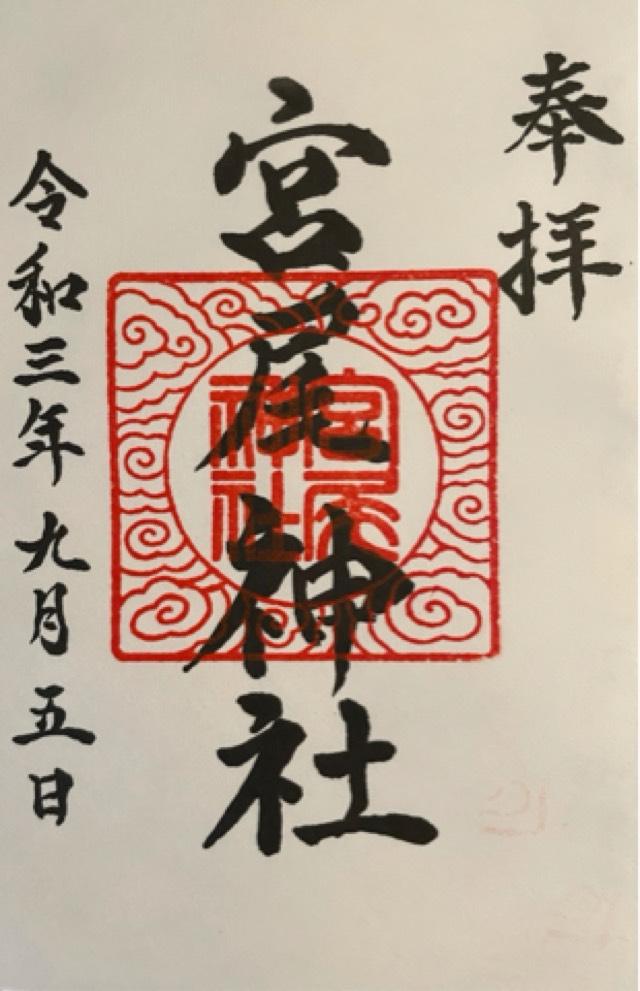 奉拝
宮尾神社
宮尾神社
令和三年九月五日